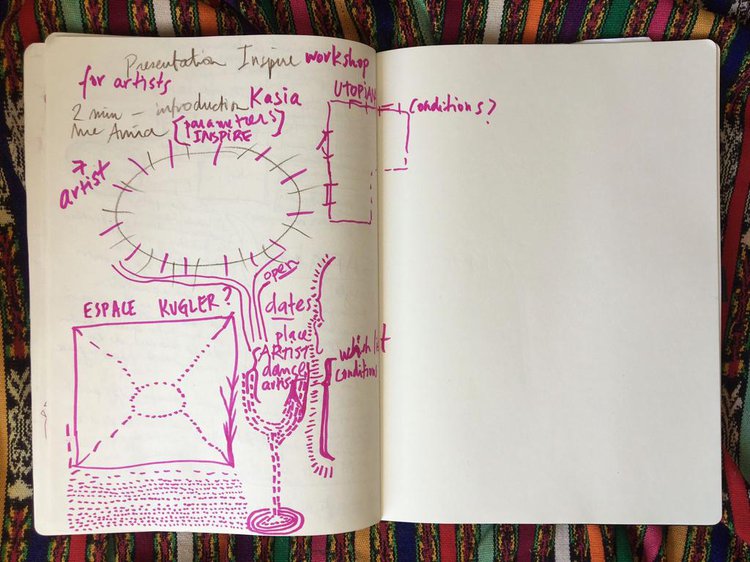 Presentation Inspire workshop
for artists UTOPIAN
2 min - introduction Kasia conditions?
me Anna [parameters
INSPIRE]
artist
open
ESPACE KUGLER?
dates
place
ARTIST which
dance conditions
artist